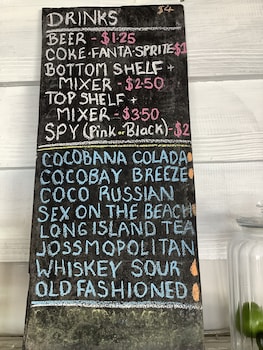 DRINKS $4
BEER - $1.25
COKE·FANTA·SPRITE $1
BOTTOM SHELF +
MIXER - $2.50
TOP SHELF +
MIXER - $3.50
SPY (Pink or Black) - $2
COCOBANA COLADA
COCOBAY BREEZE
COCO RUSSIAN
SEX ON THE BEACH
LONG ISLAND TEA
JOSSMOPOLITAN
WHISKEY SOUR
OLD FASHIONED